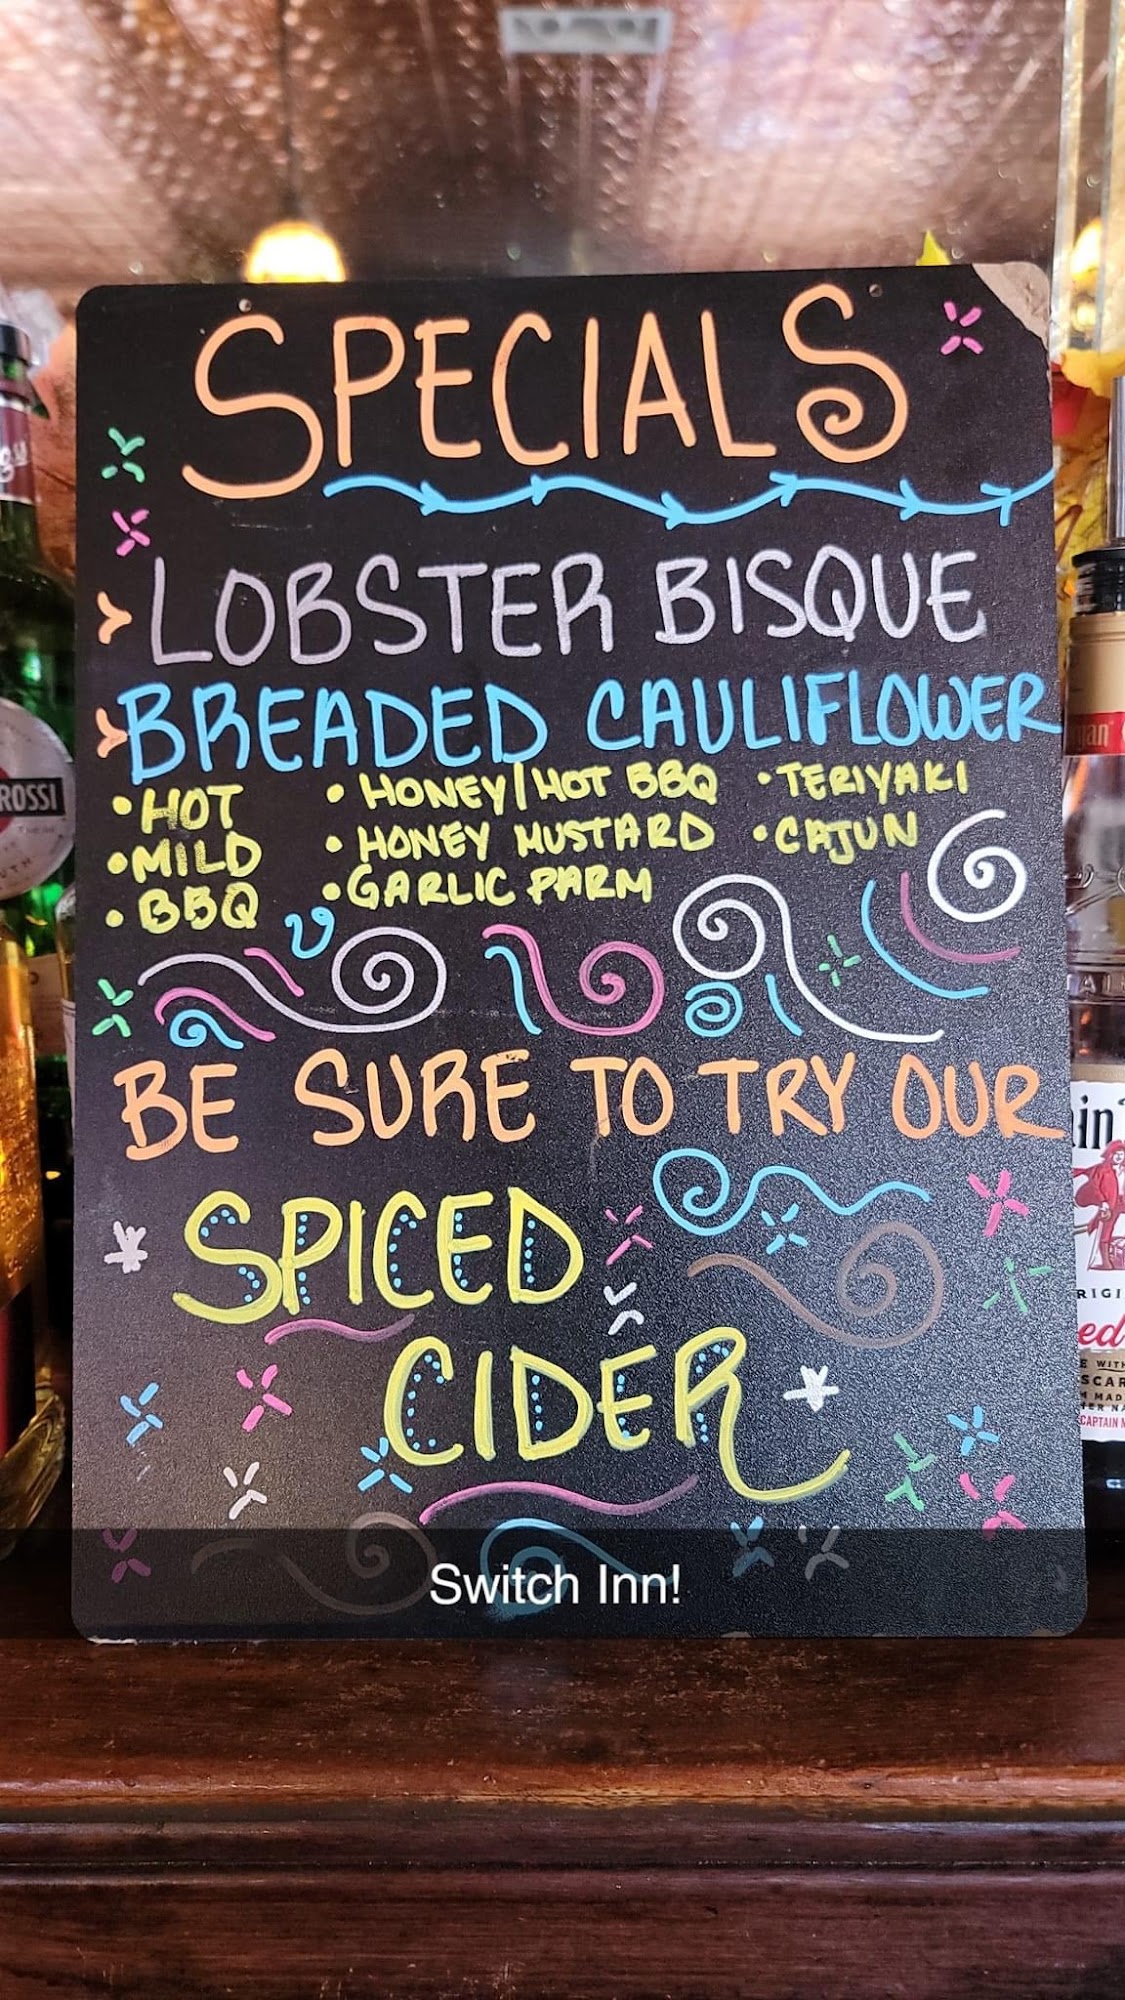 SPECIALS
LOBSTER BISQUE
BREADED CAULIFLOWER
• HOT • HONEY/HOT BBQ • TERIYAKI
• MILD • HONEY MUSTARD • CAJUN
• BBQ • GARLIC PARM
BE SURE TO TRY OUR
SPICED
CIDER
Switch Inn!
ROSSI
CAPTAIN